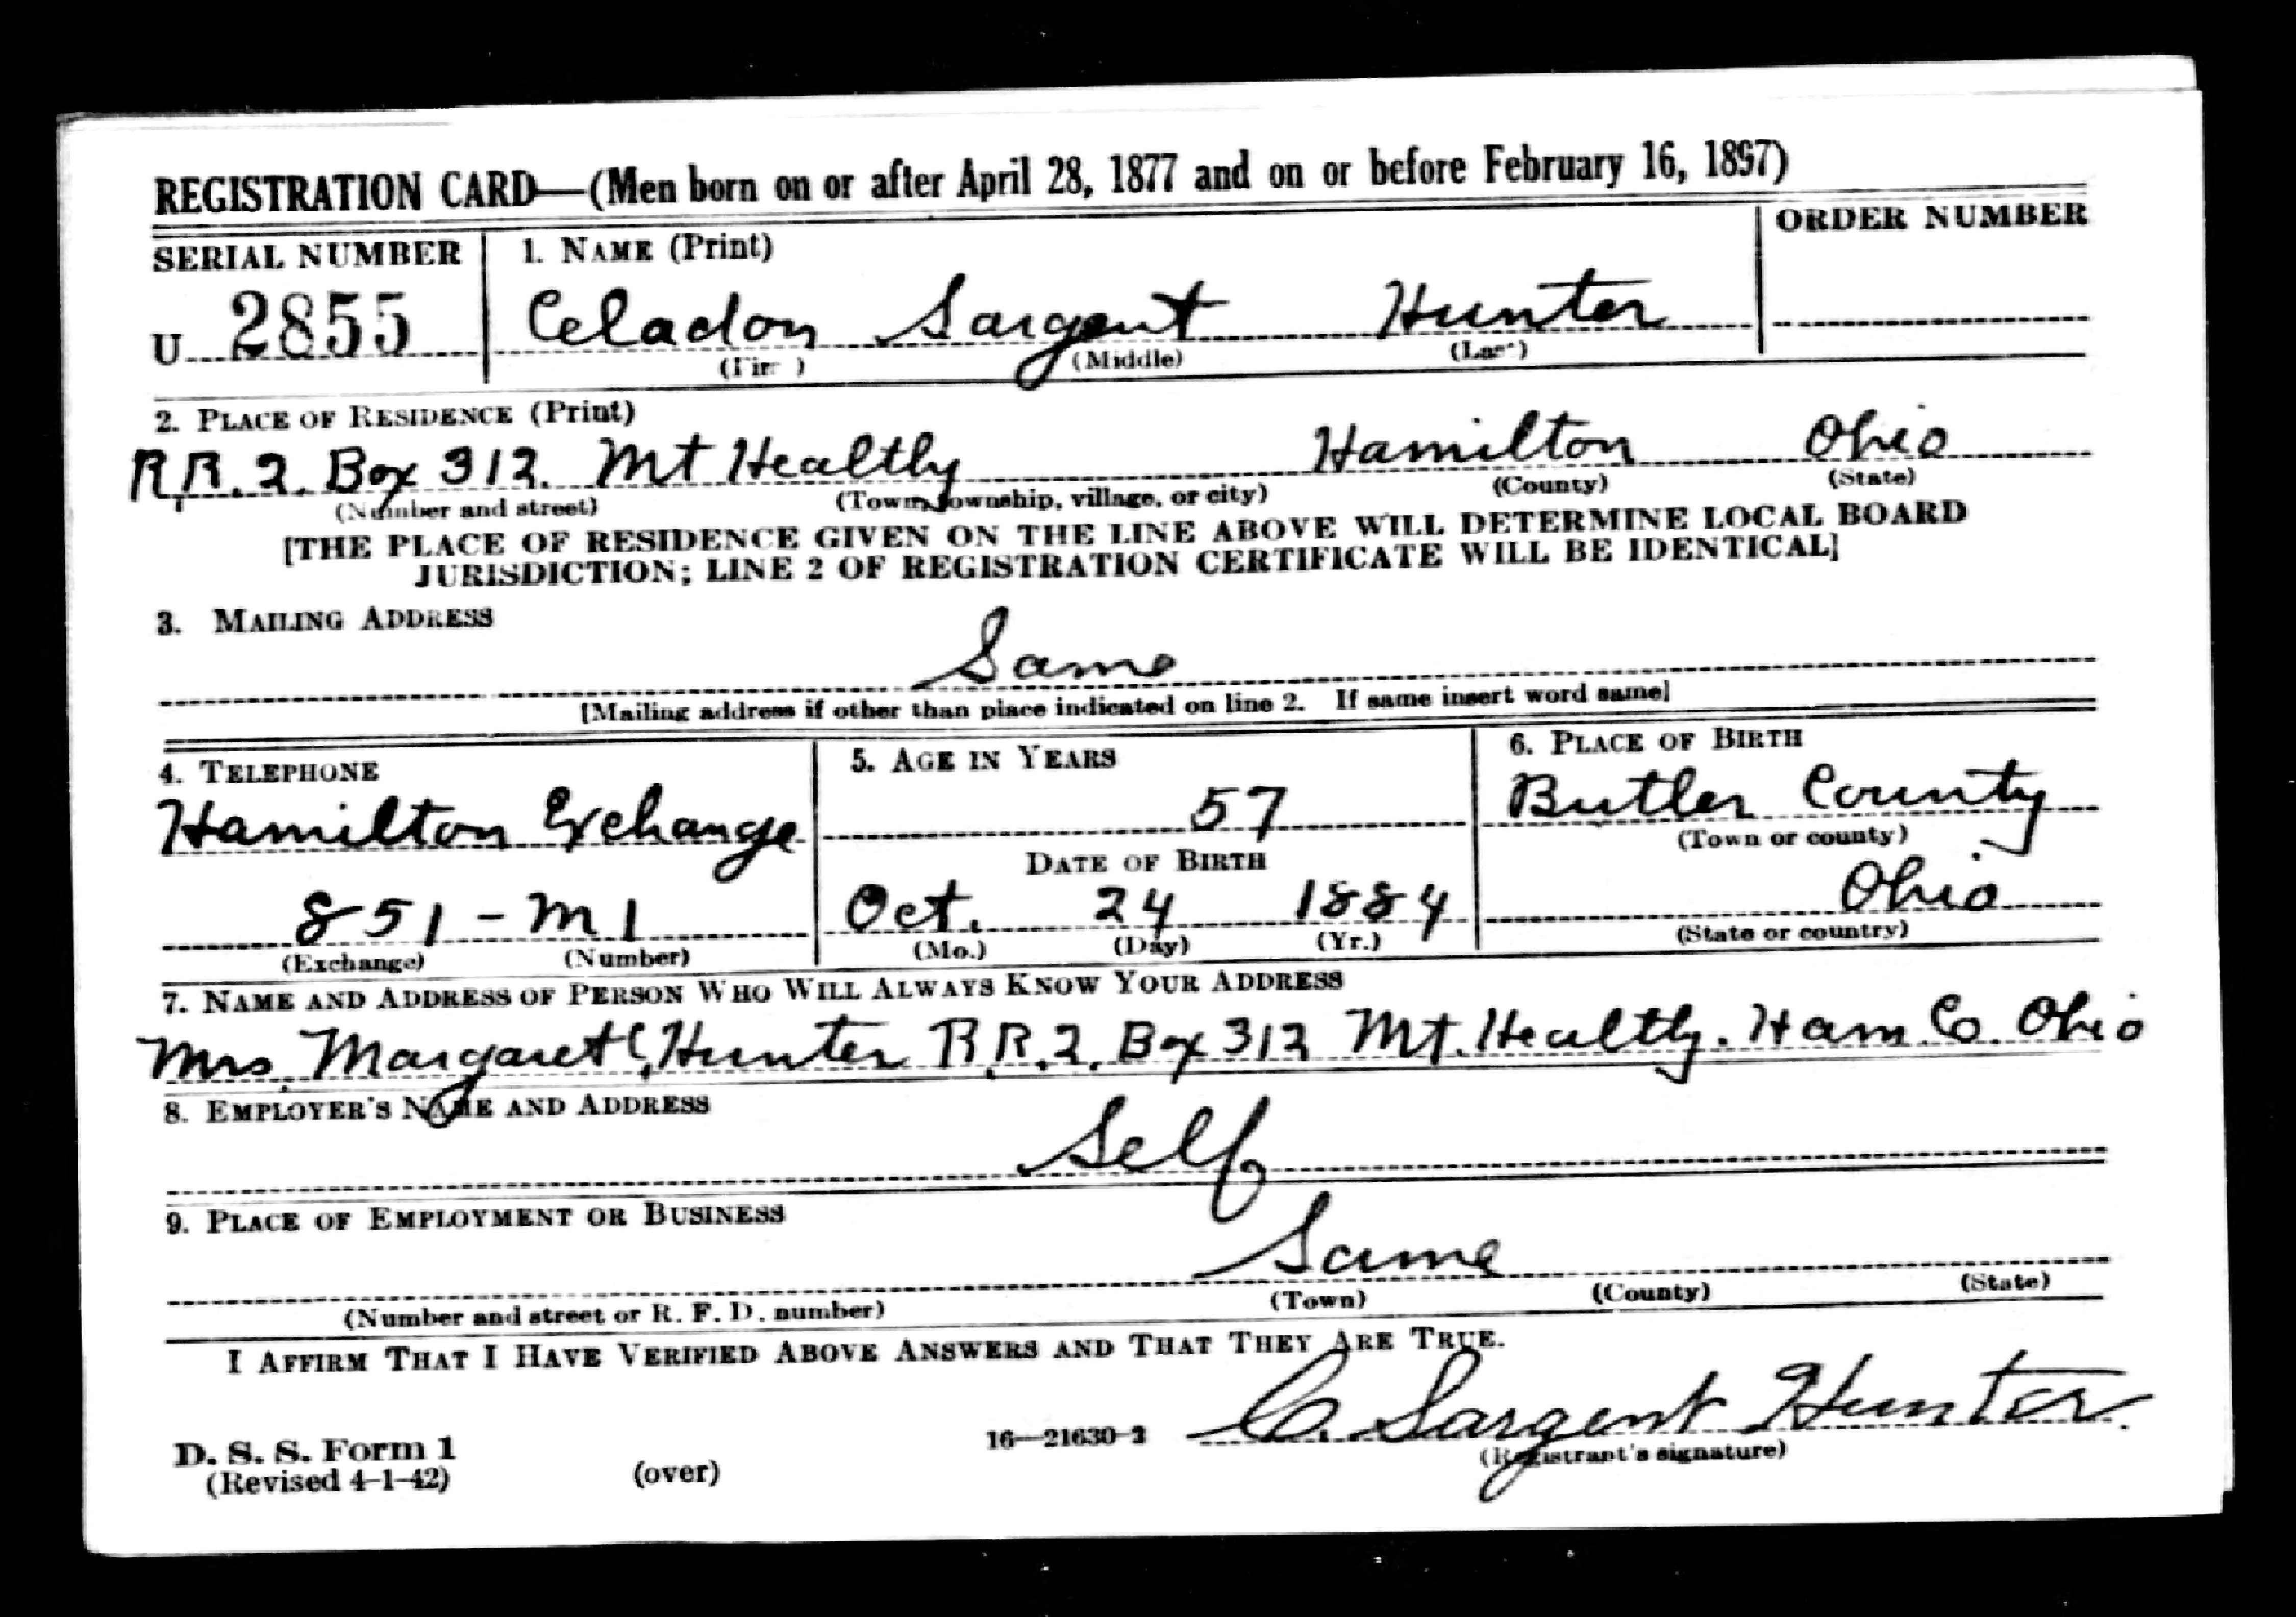 REGISTRATION CARD—(Men born on or after April 28, 1877 and on or before February 16, 1897)
SERIAL NUMBER
1. NAME (Print)
ORDER NUMBER
U 2855
Celadon Sargent Hunter
(Middle)
2. PLACE OF RESIDENCE (Print)
R.R. 2. Box 312. Mt Healthy Hamilton Ohio
(Number and street) (Town, township, village, or city) (County) (State)
[THE PLACE OF RESIDENCE GIVEN ON THE LINE ABOVE WILL DETERMINE LOCAL BOARD
JURISDICTION; LINE 2 OF REGISTRATION CERTIFICATE WILL BE IDENTICAL]
3. MAILING ADDRESS
Same
[Mailing address if other than place indicated on line 2. If same insert word same]
4. TELEPHONE
Hamilton Exchange
851 - M1
(Exchange) (Number)
5. AGE IN YEARS
57
DATE OF BIRTH
Oct. 24 1884
(Mo.) (Day) (Yr.)
6. PLACE OF BIRTH
Butler County
(Town or county)
Ohio
(State or country)
7. NAME AND ADDRESS OF PERSON WHO WILL ALWAYS KNOW YOUR ADDRESS
Mrs. Margaret C. Hunter R.R. 2. Box 312 Mt. Healthy. Ham Co. Ohio
8. EMPLOYER'S NAME AND ADDRESS
Self
9. PLACE OF EMPLOYMENT OR BUSINESS
Same
(Number and street or R. F. D. number) (Town) (County) (State)
I AFFIRM THAT I HAVE VERIFIED ABOVE ANSWERS AND THAT THEY ARE TRUE.
C. Sargent Hunter
D. S. S. Form 1
(Revised 4-1-42)
(over)
16—21630-2
(Registrant's signature)